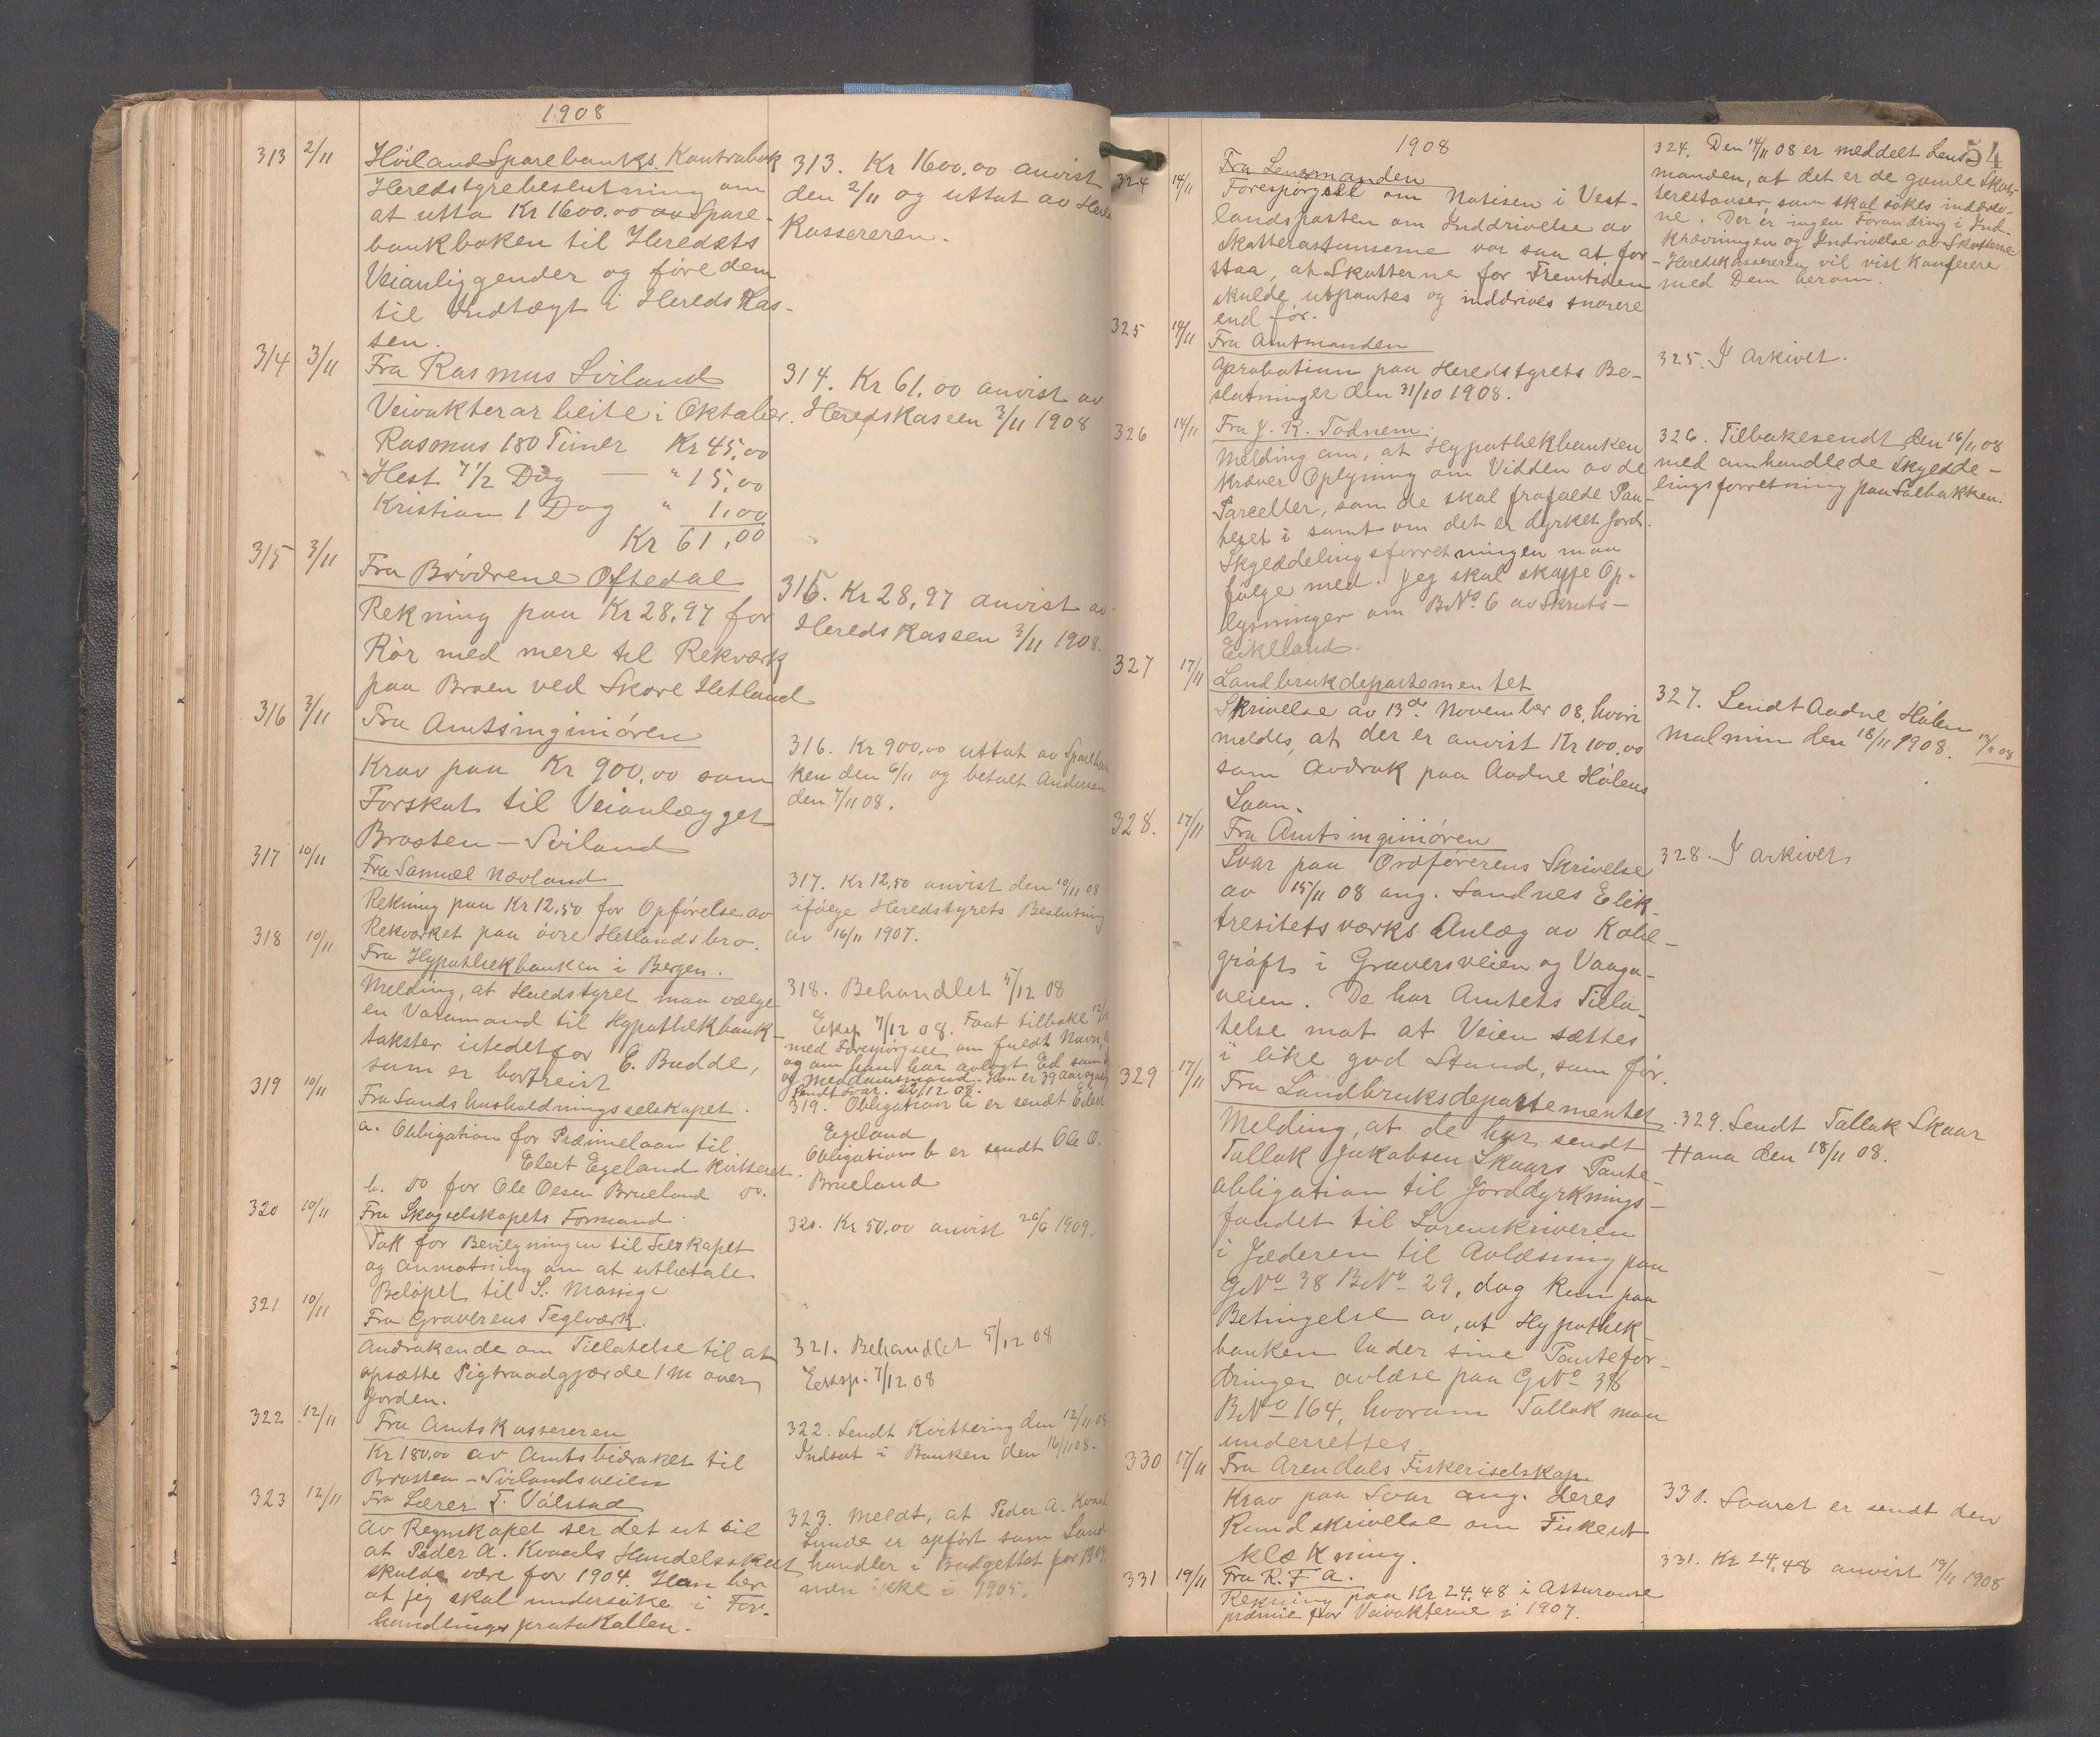 1908
313 2/11 Höiland Sparebanks Kontrabok
Heredstyrebeslutning om
at utta Kr 1600.00 av Spare-
bankboken til Heredets
Veianliggender og före dem
til Indtægt i Hereds Kas-
sen.
313. Kr 1600.00 anvist
den 2/11 og uttat av Hereds
Kassereren.
314 3/11 Fra Rasmus Sviland
Veivakterarbeite i Oktober.
Rasmus 180 Timer Kr 45,00
Hest 7 1/2 Dag — " 15,00
Kristian 1 Dag " 1,00
Kr 61,00
314. Kr 61.00 anvist av
Heredskassen 3/11 1908
315 3/11 Fra Brödrene Oftedal
Rekning paa Kr 28,97 for
Rör med mere til Rekværk
paa Broen ved Skore Hetland
315. Kr 28,97 anvist av
Hereds Kassen 3/11 1908.
316 3/11 Fra Amtsinginiören
Krav paa Kr 900,00 som
Forskut til Veianlægget
Brosten — Sviland
316. Kr 900,00 uttat av Spareban
ken den 6/11 og betalt Andersen
den 7/11 08.
317 10/11 Fra Samuel Nævland
Rekning paa Kr 12,50 for Opförelse av
Rekværket paa övre Hetlandsbro.
317. Kr 12,50 anvist den 10/11 08
ifölge Heredstyrets Beslutning
av 16/11 1907.
318 10/11 Fra Hypothekbanken i Bergen.
Melding, at Heredstyret maa vælge
en Varamand til Hypothekbank-
takster istedetfor E. Budde,
som er bortreist
318. Behandlet 5/12 08
Eksp 7/12 08. Faat tilbake 12/12
med Forespörgsel om fuldt Navn,
og om han har avlagt Ed som
og Meddomsmand. Han er 39 Aar
Sendt Svar. 22/12 08.
319 10/11 Fra Landshusholdningsselskapet.
a. Obligation for Præmielaan til
Elert Egeland kvitteret.
b. Do for Ole Olsen Brueland Do.
319. Obligation a er sendt Elert
Egeland
Obligation b er sendt Ole O.
Brueland
320 10/11 Fra Skogselskapets Formand
Tak for Bevilgningen til Selskapet
og anmotning om at utbetale
Belöpet til S. Mossige
320. Kr 50,00 anvist 26/6 1909.
321 10/11 Fra Graverens Teglværk.
Andrakende om Tillatelse til at
opsætte Pigtraadgjærde 1 m over
Jorden.
321. Behandlet 5/12 08
Eksp. 7/12 08
322 12/11 Fra Amtskassereren
Kr 180.00 av Amtsbidraket til
Brosten — Svilandsveien
322. Sendt Kvittering den 12/11 08
Indsat i Banken den 16/11 08.
323 12/11 Fra Lærer T. Välstad
Av Regnskapet ser det ut til
at Peder A. Kvaals Handelsskat
skulde være for 1904. Han ber
at jeg skal undersöke i For-
handlingsprotokollen.
323. Meldt, at Peder A. Kvaal
Lunde er opfört som Land
handler i Budgettet for 1904.
men ikke i 1905.
54
1908
324 14/11 Fra Lensmanden
Forespörgsel om Notisen i Vest-
landsposten om Inddrivelse av
Skatterestanserne var saa at for-
staa, at Skatterne for Fremtiden
skulde utpantes og inddrives snarere
end för.
324. Den 14/11 08 er meddelt Lens-
manden, at det er de gamle Skat-
terestanser, som skal sökes inddrev-
ne. Der er ingen Forandring i Ind-
krævningen og Indrivelse av Skatterne
Heredskassereren vil vist konferere
med Dem herom.
325 14/11 Fra Amtmanden
Aprobation paa Heredstyrets Be-
slutninger den 31/10 1908.
325. I Arkivet.
326 14/11 Fra J. K. Todnem.
Melding om, at Hypothekbanken
kræver Oplysning om Vidden av de
Parceller, som de skal frafalde Pan-
tepet i samt om det er dyrket Jord.
Skylddelingsforretningen maa
fölge med. Jeg skal skaffe Op-
lysninger om BNo. 6 av Skruts-
Eikeland.
326. Tilbakesendt den 16/11 08
med omhandlede Skylddelingsforretning paa Solbakken.
327 17/11 Landbrukdepartementet
Skrivelse av 13de November 08, hvori
meldes, at der er anvist Kr 100,00
som Avdrak paa Aadne Hölens
Laan.
327. Sendt Aadne Hölen
Malmin den 18/11 1908. 18/11 08
328. 17/11 Fra Amtsinginiören
Svar paa Ordförerens Skrivelse
av 15/11 08 ang. Sandnes Elek-
tresitetsværks Anlæg av Kabel-
gröft i Graversveien og Vaaga-
veien. De har Amtets Tilla-
telse mot at Veien sættes
i like god Stand, som för.
328. I Arkivet
329 17/11 Fra Landbruksdepartementet
Melding, at de har sendt
Tollak Jakobsen Skaars Pante-
obligation til Jorddyrknings-
fondet til Sorenskriveren
i Jæderen til Avlæsning paa
GNo 38 BNo 29, dog kun paa
Betingelse av, at Hypothek-
banken lader sine Pantefor-
dringer avlæse paa GNo 38
BNo 164, hvorom Tollak maa
underrettes
329. Sendt Tollak Skaar
Hana den 18/11 08.
330 17/11 Fra Arendals Fiskeriselskap.
Krav paa Svar ang. deres
Rundskrivelse om Fiskeut
klækning.
330. Svaret er sendt den
331 19/11 Fra R. F. A.
Rekning paa Kr 24,48 i Assuranse
præmie for Veivakterne i 1907.
331. Kr 24,48 anvist 19/11 1908